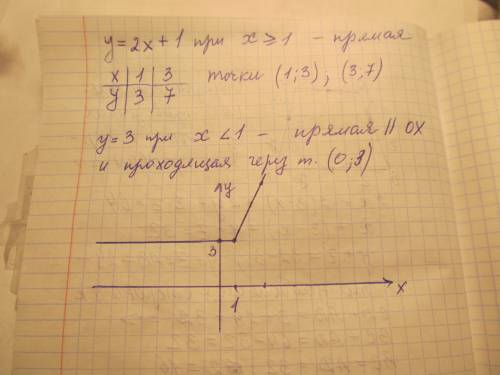 y=2x+1 при x≥1 – прямая
x | 1 | 3 точки (1;3), (3;7)
y | 3 | 7
y=3 при x<1 – прямая || OX
и проходящая через т. (0;3)
y
3
1
x